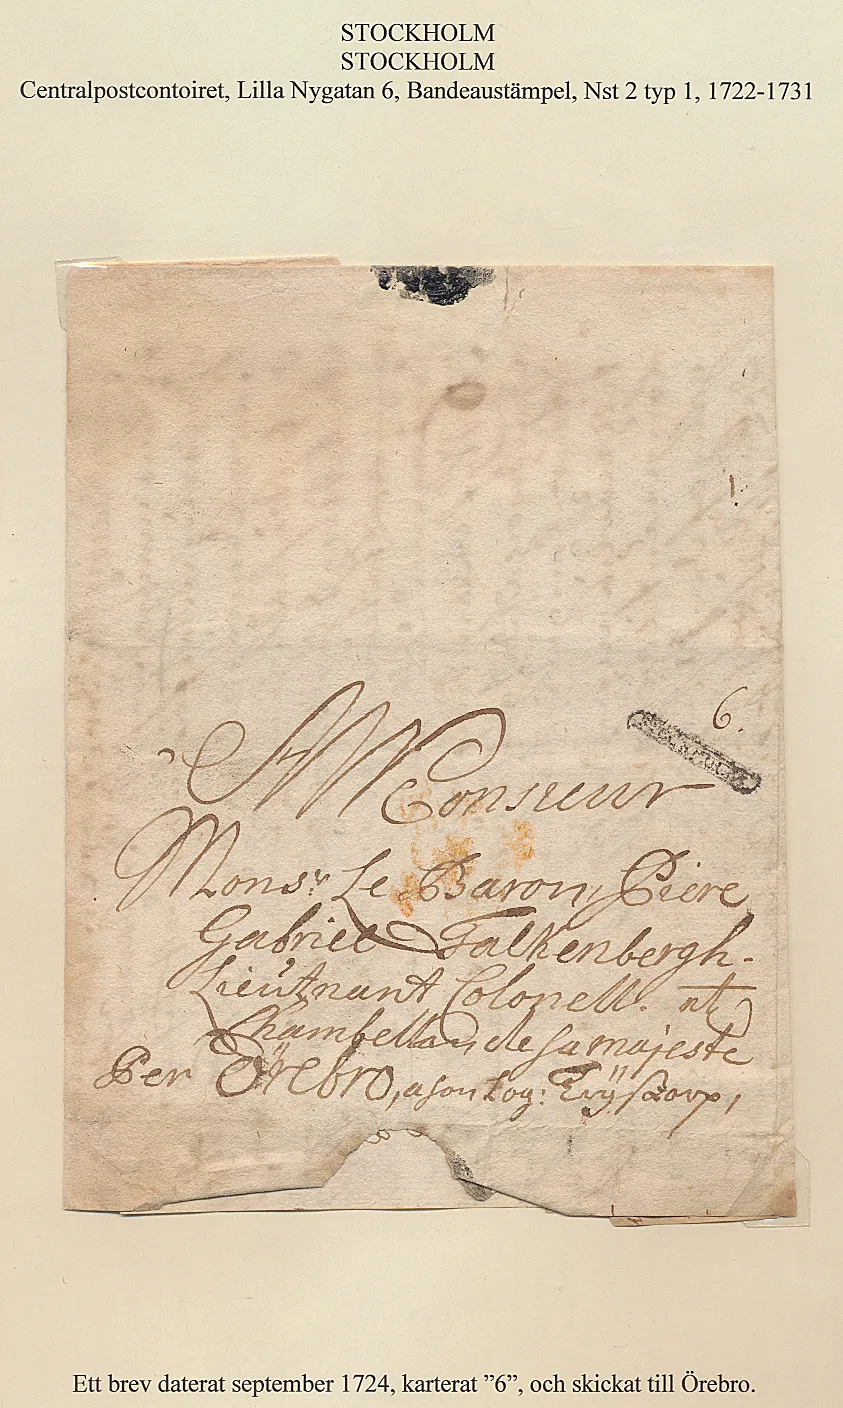 STOCKHOLM
STOCKHOLM
Centralpostcontoiret, Lilla Nygatan 6, Bandeaustämpel, Nst 2 typ 1, 1722-1731
6.
A Monsieur
Monsr. Le Baron, Piere
Gabriel Falkenbergh.
Lieutnant Colonell. et
Chambellan de sa majeste
Per Örebro, a son
Ett brev daterat september 1724, karterat ”6”, och skickat till Örebro.